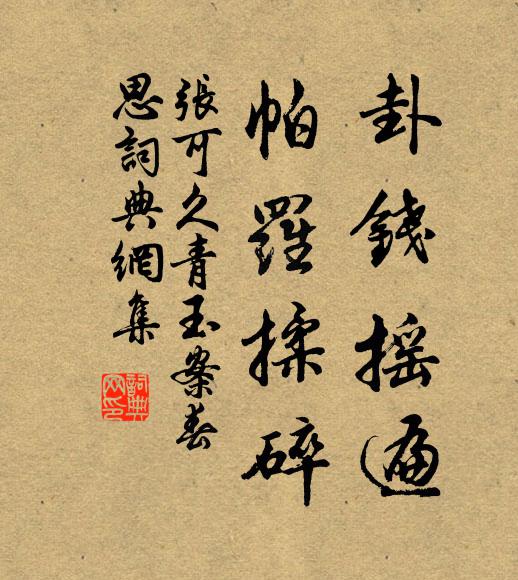 卦錢搖遍
帕羅揉碎
張可久青玉案春
思詞典網集
詞典
网印